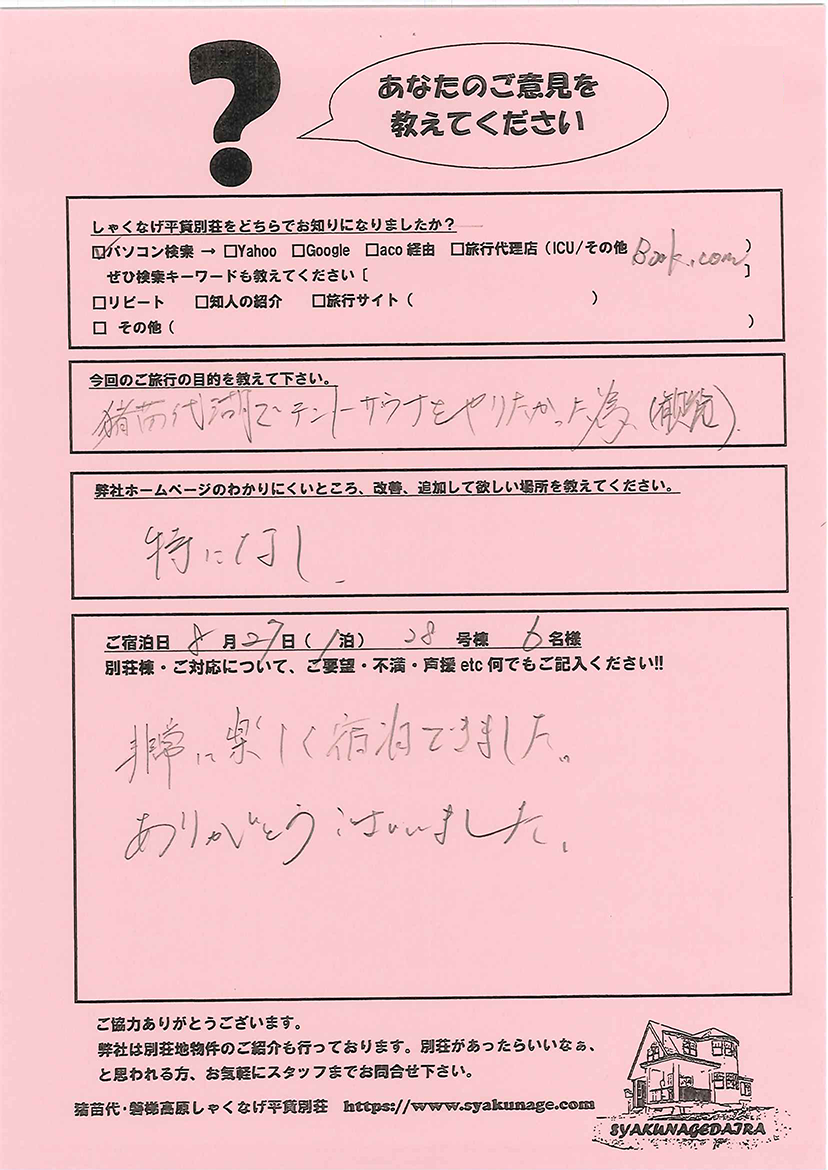 ?
あなたのご意見を
教えてください
しゃくなげ平貸別荘をどちらでお知りになりましたか？
☑パソコン検索 → □Yahoo □Google □aco経由 □旅行代理店（ICU/その他 Book.com ）
ぜひ検索キーワードも教えてください［ ］
□リピート □知人の紹介 □旅行サイト（ ）
□ その他（ ）
今回のご旅行の目的を教えて下さい。
猪苗代湖でテントサウナをやりたかった為
弊社ホームページのわかりにくいところ、改善、追加して欲しい場所を教えてください。
特になし
ご宿泊日 8月27日（1泊） 28号棟 6名様
別荘棟・ご対応について、ご要望・不満・声援etc何でもご記入ください!!
非常に楽しく宿泊できました。
ありがとうございました。
ご協力ありがとうございます。
弊社は別荘地物件のご紹介も行っております。別荘があったらいいなぁ、
と思われる方、お気軽にスタッフまでお問合せ下さい。
猪苗代・磐梯高原しゃくなげ平貸別荘 https://www.syakunage.com
SYAKUNAGEDAIRA